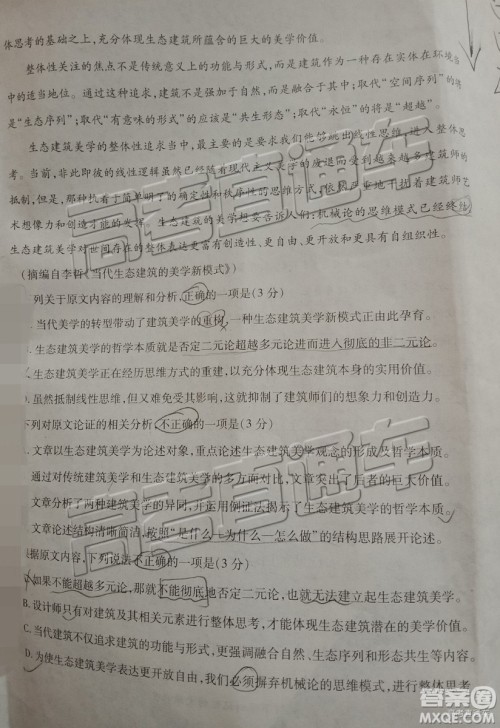 体思考的基础之上,充分体现生态建筑所蕴含的巨大的美学价值。
整体性关注的焦点不是传统意义上的功能与形式,而是建筑作为一种存在实体在环境当
中的适当地位。通过这种追求,建筑不是强加于自然,而是融合于其中;取代“空间序列”的将
是“生态序列”;取代“有意味的形式”的应该是“共生形态”;取代“永恒”的将是“超越”。
生态建筑美学的整体性追求当中,最主要的是要求我们能够跳出线性思维,进入整体思
考。当前,非此即彼的线性逻辑虽然已经随着现代主义美学的废退而受到越来越多建筑师的
抵制,但是,那种执着于简单明了的确定性和秩序性的思维方式
术想像力和创造才能的发挥。生态建筑的美学想要告诉人们:机械论的思维模式已经终结,
生态建筑美学对世间存在的整体表达更富有创造性、更自由、更开放和更具有自组织性。
(摘编自李哲《当代生态建筑的美学新模式》)
列关于原文内容的理解和分析,正确的一项是(3分)
当代美学的转型带动了建筑美学的重树,一种生态建筑美学新模式正由此孕育。
生态建筑美学的哲学本质就是否定二元论超越多元论进而进入彻底的非二元论。
生态建筑美学正在经历思维方式的重建,以充分体现生态建筑本身的实用价值。
虽然抵制线性思维,但又难免受其影响,这就抑制了建筑师们的想象力和创造力。
下列对原文论证的相关分析,不正确的一项是(3分)
文章以生态建筑美学为论述对象,重点论述生态建筑美学观念的形成及哲学本质。
通过对传统建筑美学与生态建筑美学的多方面对比,文章显示了后者的巨大价值。
文章分析了两种建筑美学的原则和实例,从而突出显示了生态建筑美学的哲学本质。
文章论述结构清晰简洁,按照“是什么—为什么—怎么做”的结构思路展开论述。
据原文内容,下列说法不正确的一项是(3分)
如果不能超越多元论,那就不能彻底地否定二元论,也就无法建立起生态建筑美学。
B.设计师只有对建筑及其相关元素进行整体思考,才能体现生态建筑潜在的美学价值。
C.当代建筑不仅追求建筑的功能与形式,更强调融合自然、生态序列和共生形态等。
D.为使生态建筑美学表达更开放自由,我们必须摒弃机械论的思维模式,进行整体思考
高考直通车
高考直通车
答案圈
MXQE.COM